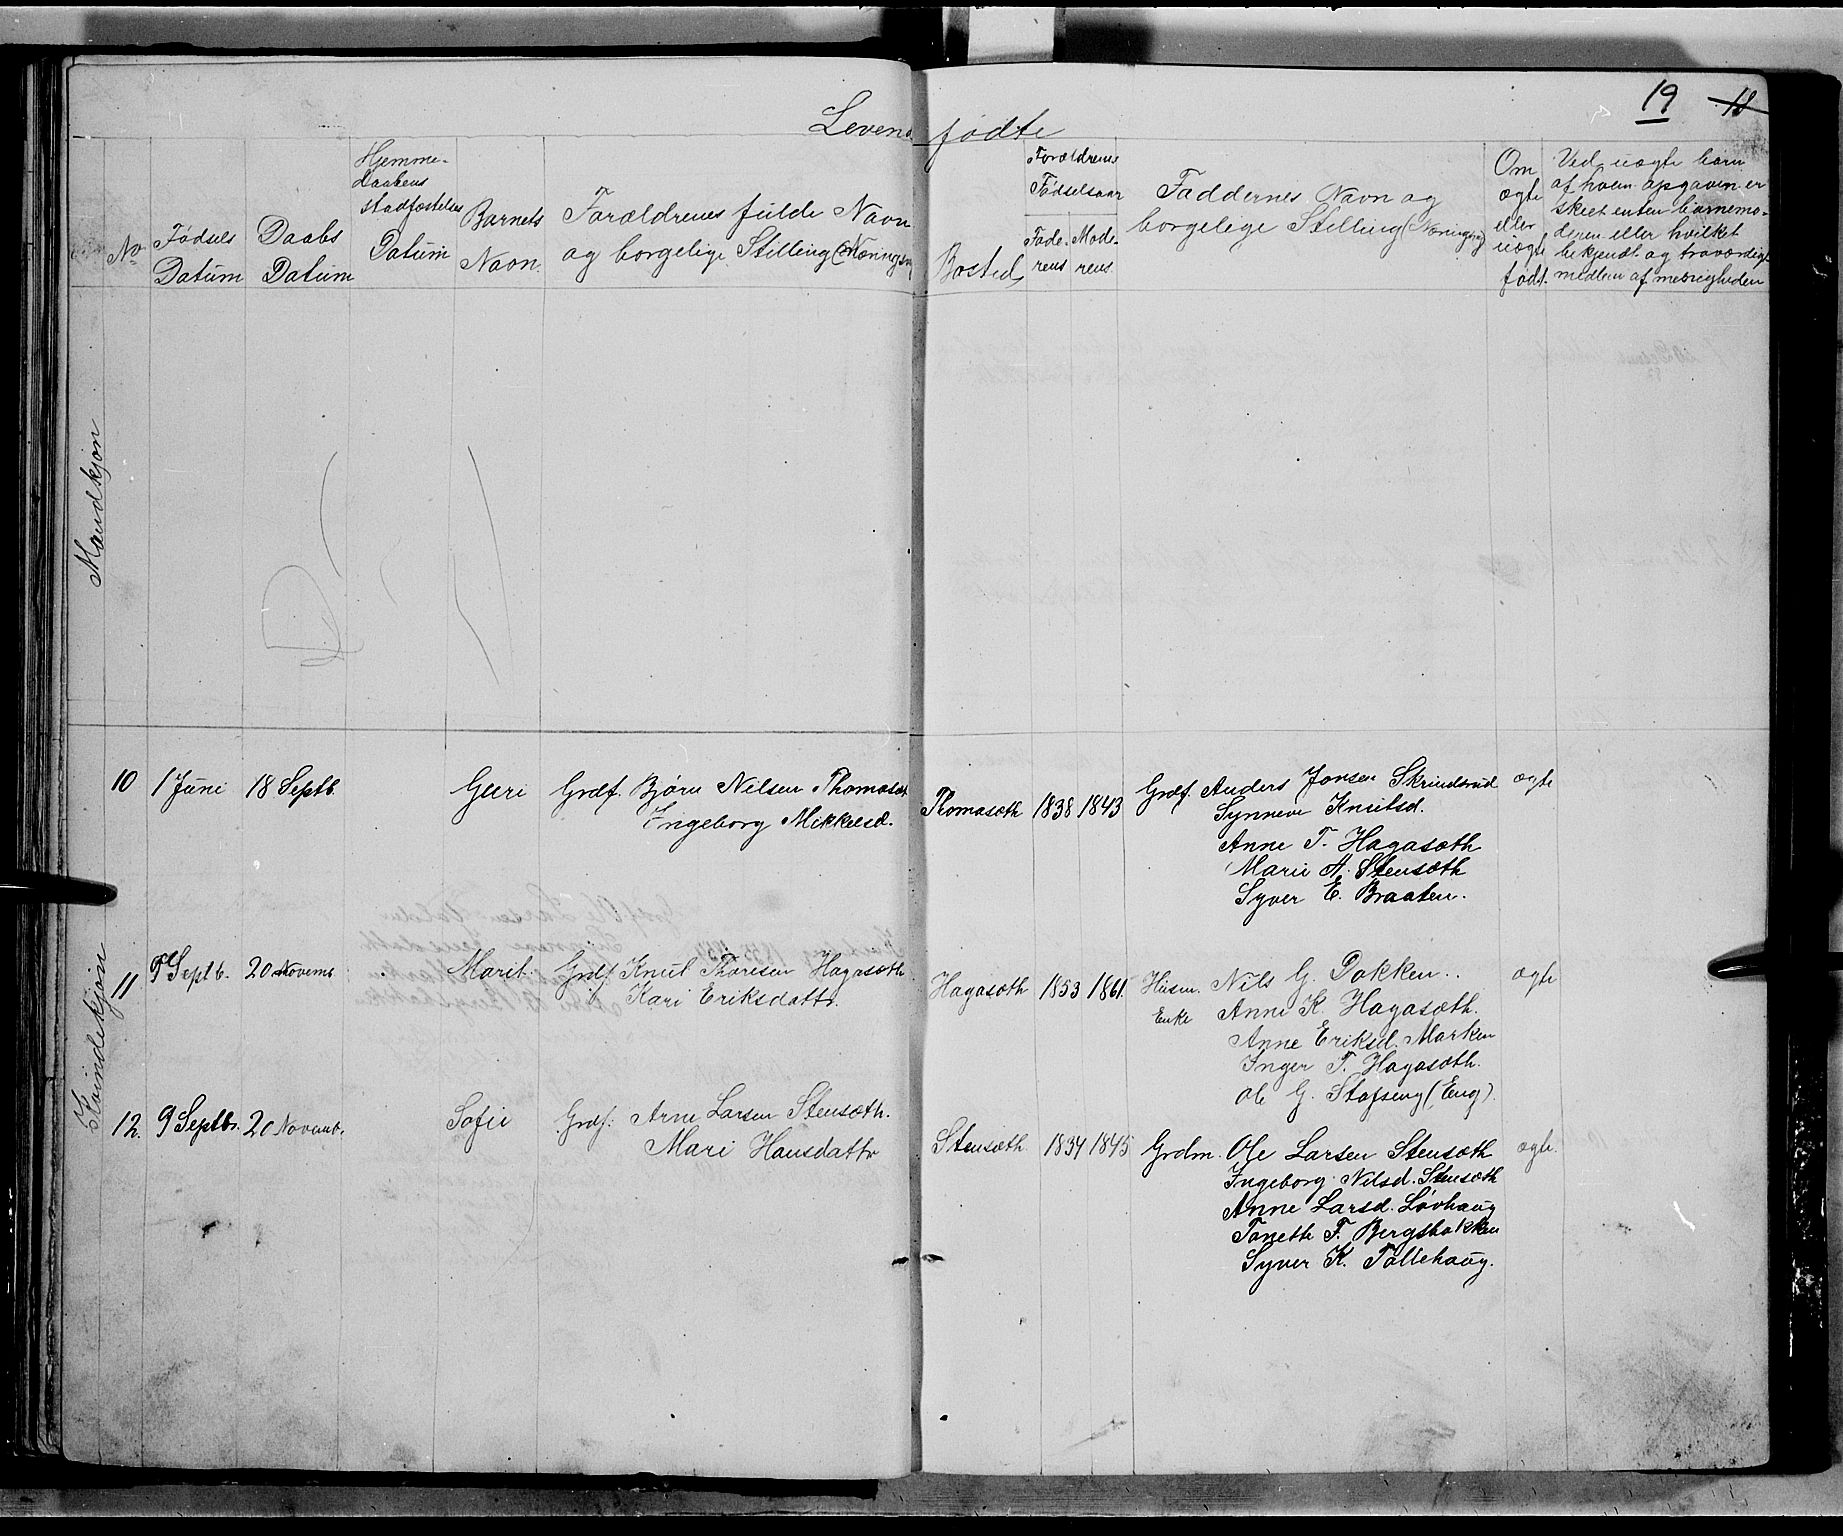 19 11
Levende fødte
No
Fødsels Datum
Daabs Datum
Hjemme-
daabens
stadfæstelses
Datum
Barnets
Navn.
Forældrenes fulde Navn
og borgelige Stilling (Nærings
Bosted,
Forældrenes
Fødselsaar
Fade- Mode-
rens rens
Faddernes Navn og
borgelige Stilling (Næringsvej)
Om
ægte
eller
uægte
født.
Ved uægte børn
af hvem opgaven er
skeet enten barnemo-
deren eller hvilket
bekjendt og troværdigt
medlem af menigheden
Mandkjøn
Kvindekjøn
10 1 Juni 18 Septb. Guri Grdf. Bjørn Nilsen Thomasæt
Ingeborg Mikkelsd.
Thomasæth 1838 1843 Grdf. Anders Jonsen Skrindsrud ægte
Synneve Knutsd.
Anne T. Hagasæth
Marie A. Stensæth
Syver E. Braaten.
11 Septb. 20 Novemb Marit. Grdf. Knut Thoresen Hagasæth
Kari Eriksdattr.
Hagasæth 1853 1861. Husm. Nils G. Dokken.. ægte
Enke Anne K. Hagasæth.
Anne Eriksd. Marken
Inger T. Hagasæth.
Ole G. Stafseng (Eng).
12. 9 Septbr. 20 Novemb. Sofie Grdf. Arne Larsen Stensæth.
Mari Hansdattr
Stensæth. 1834 1845 Grdm. Ole Larsen Stensæth ægte.
Ingeborg Nilsd. Stensæth
Anne Larsd. Løvhaug
Toneth T. Bergsbakken
Syver K. Tollehaug.